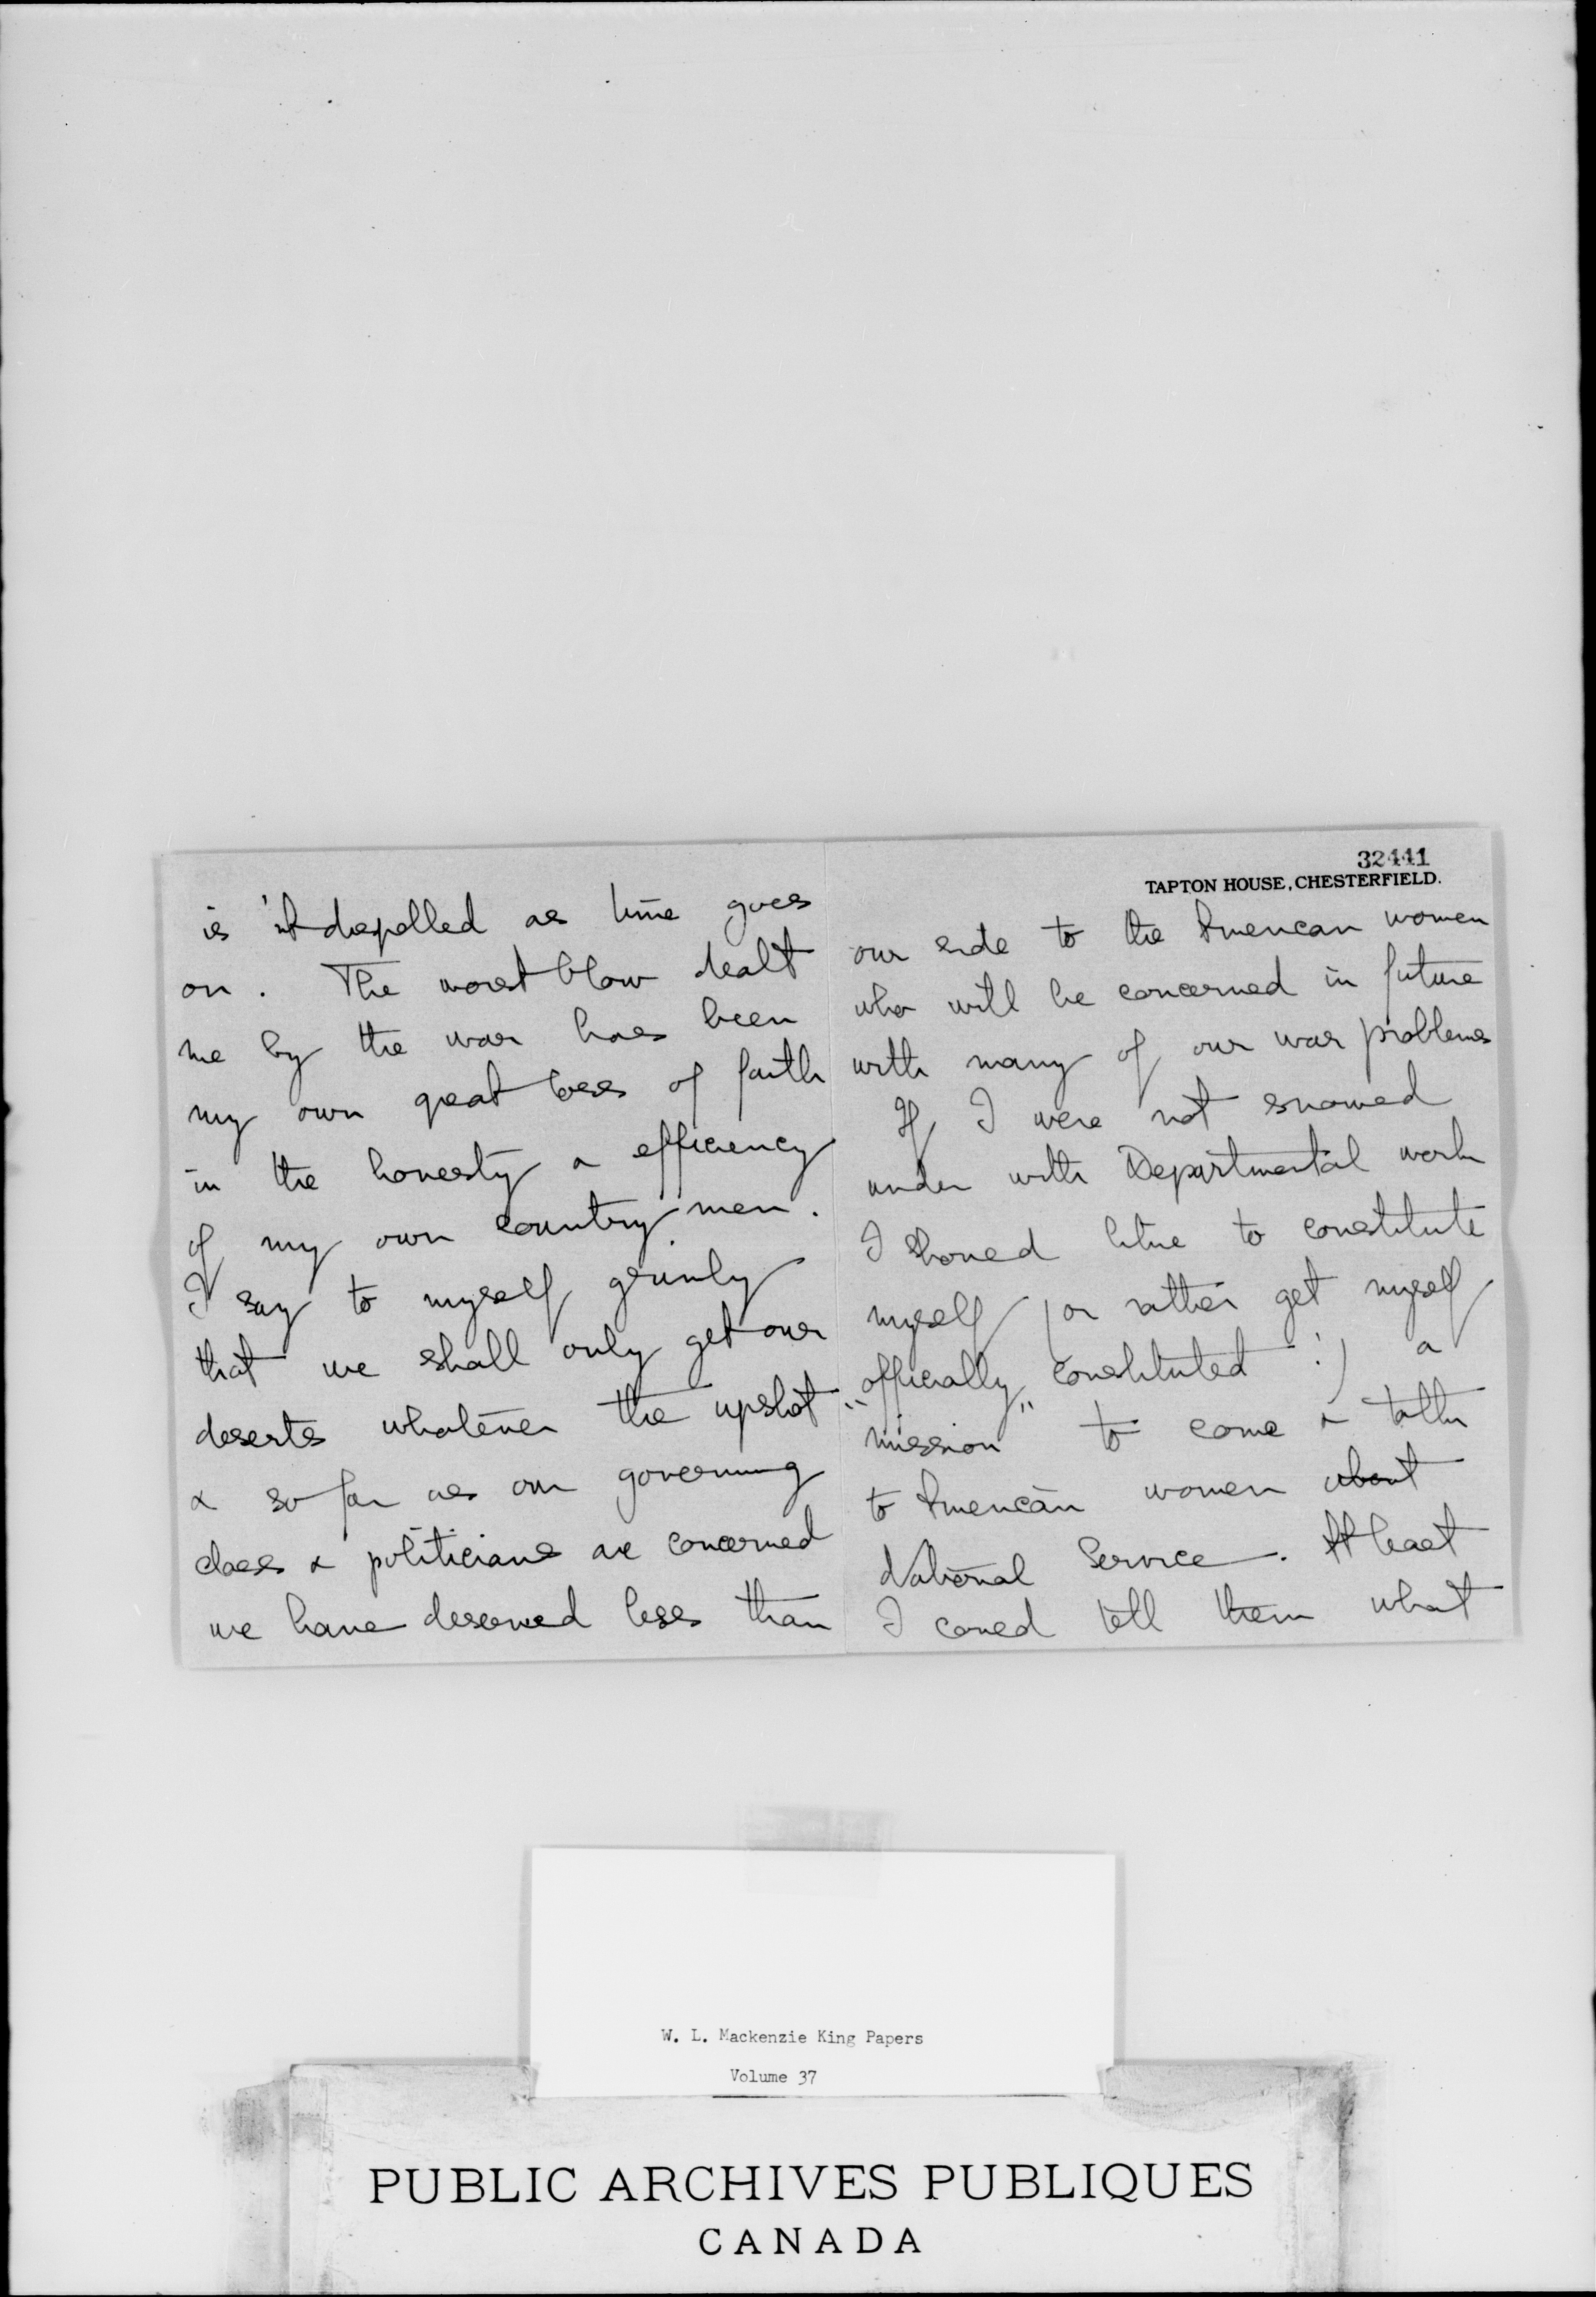 is 'nt dispelled as time goes
on. The worst blow dealt
me by the war has been
my own great loss of faith
in the honesty & efficiency
of my own country men.
I say to myself grimly
that we shall only get our
deserts whatever the upshot
& so far as our governing
class & politicians are concerned
we have deserved less than
32441
TAPTON HOUSE, CHESTERFIELD.
our side to the American women
who will be concerned in future
with many of our war problems
If I were not snowed
under with Departmental work
I should like to constitute
myself (or rather get myself
officially constituted !) a
"mission" to come & talk
to American women about
National Service. At least
I could tell them what
W. L. Mackenzie King Papers
Volume 37
PUBLIC ARCHIVES PUBLIQUES
CANADA